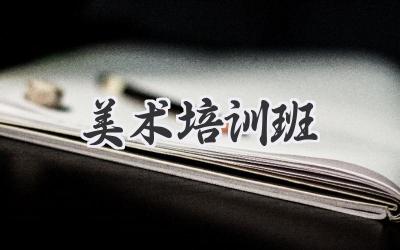 美术培训班